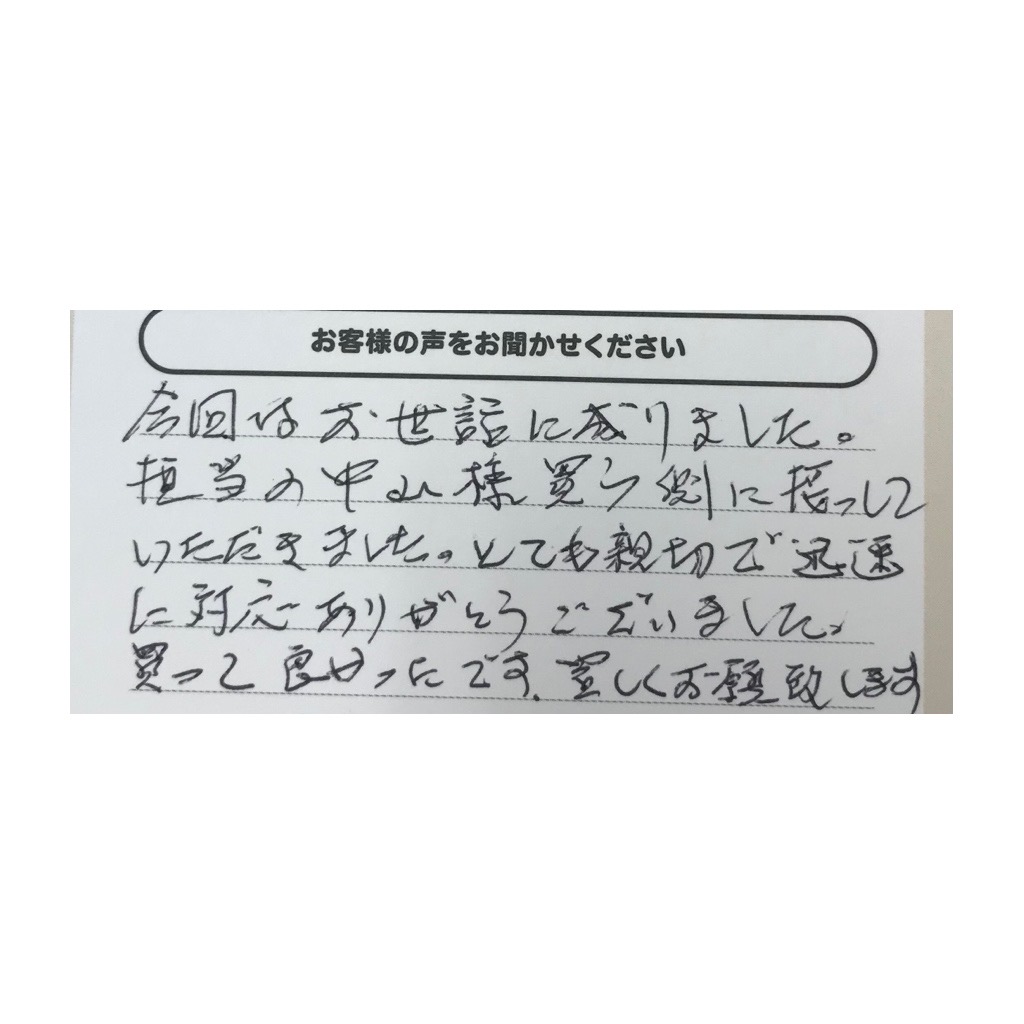 お客様の声をお聞かせください
今回はお世話に成りました。
担当の中山様買う側に振って
いただきました。とても親切で迅速
に対応ありがとうございました。
買って良かったです。宜しくお願致します